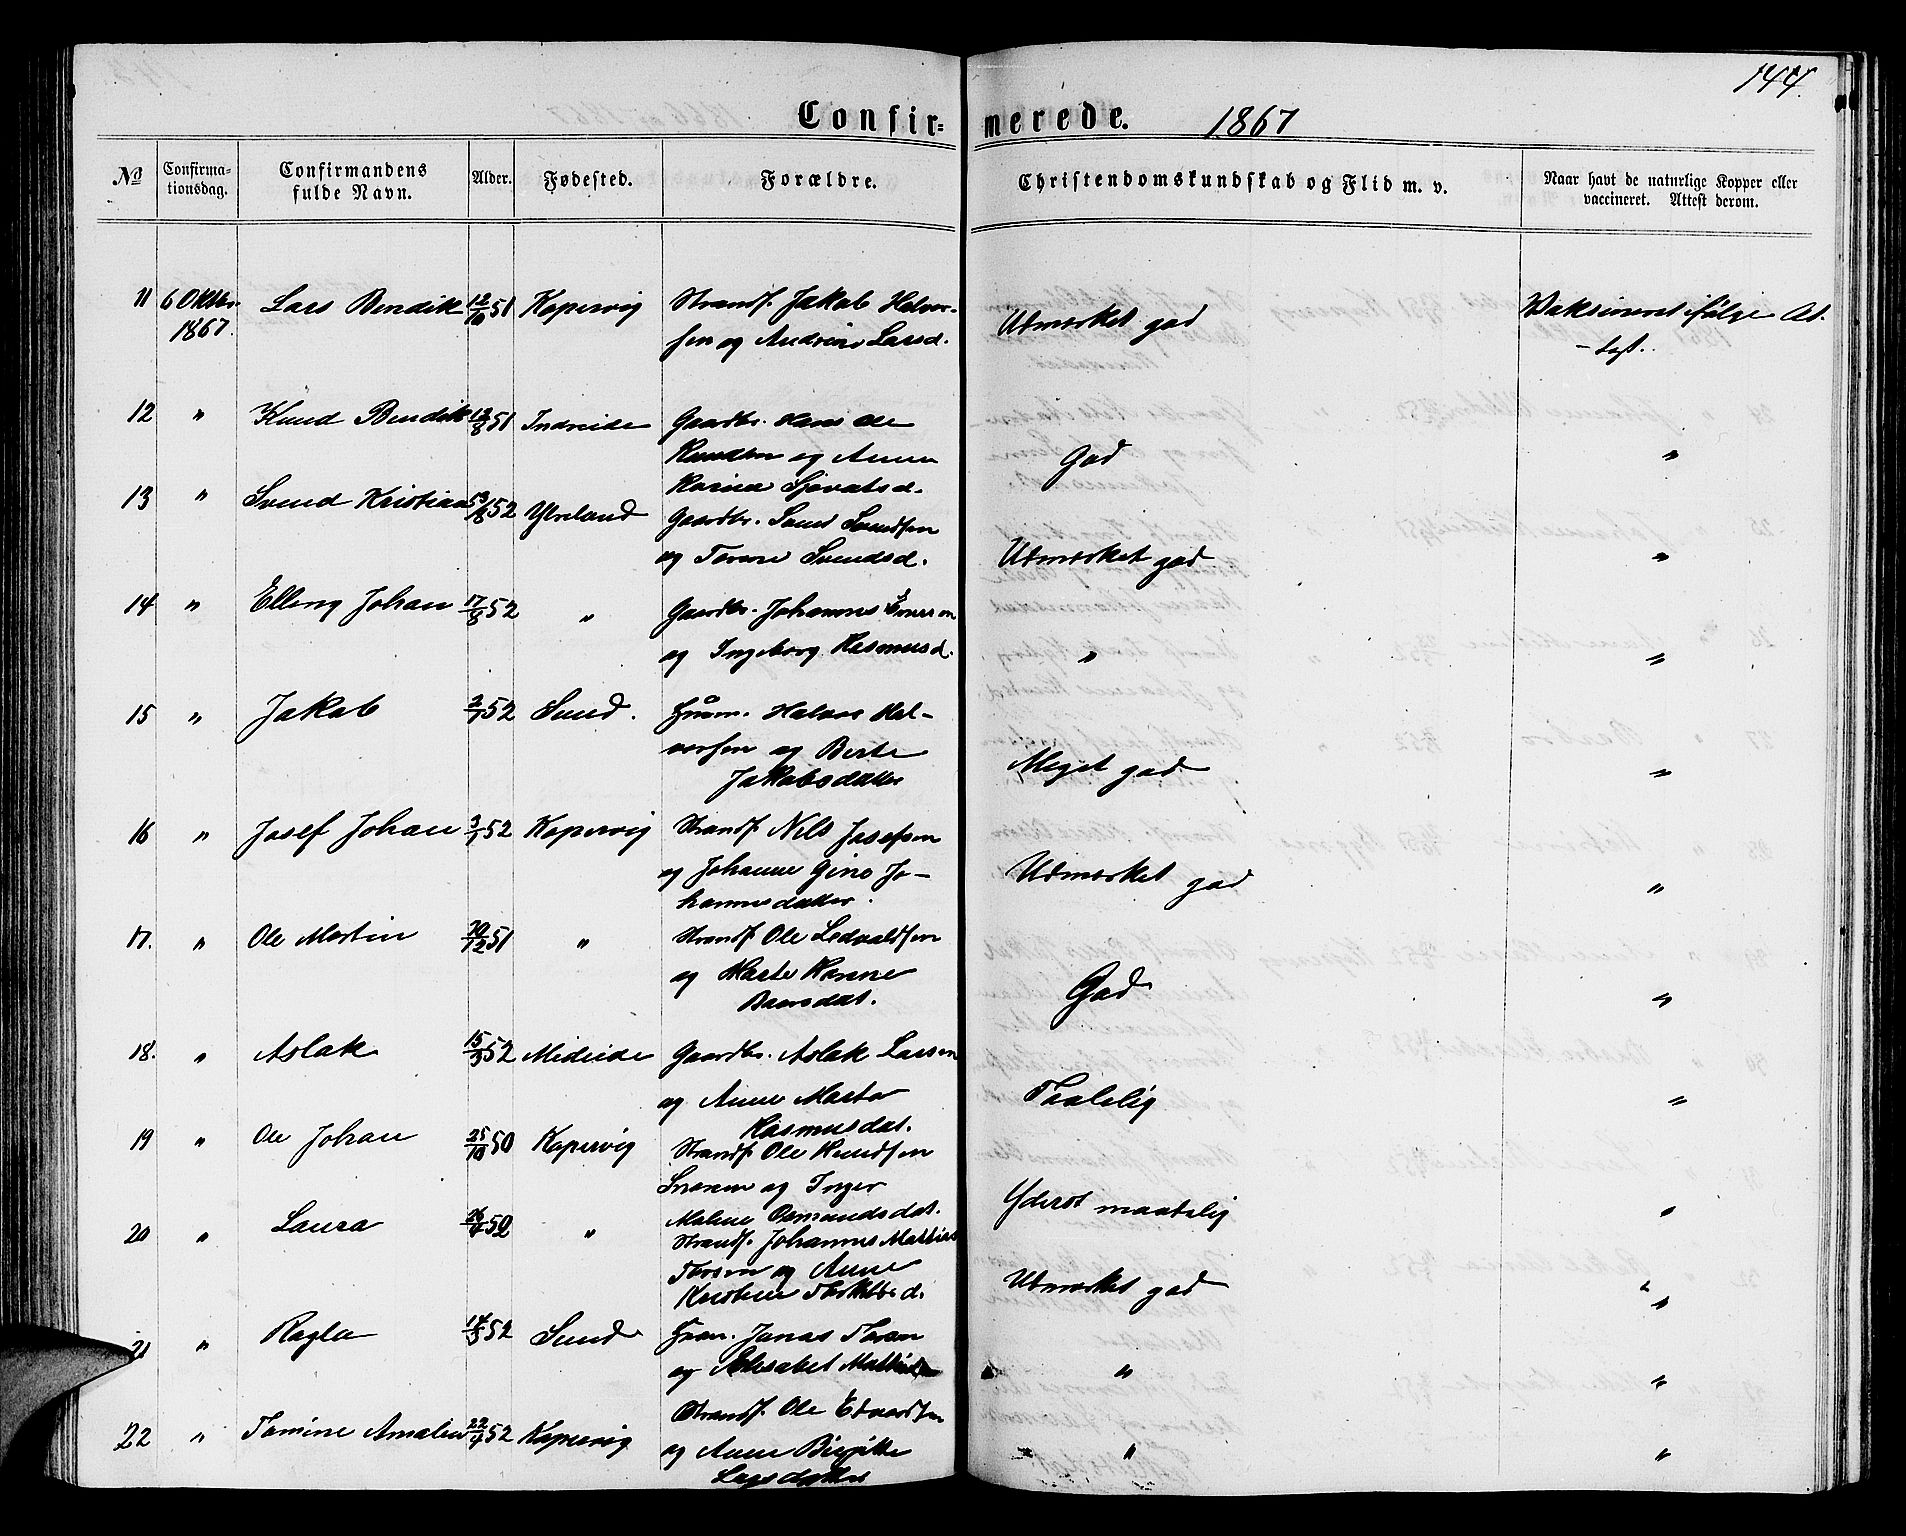 144.
Confirmerede. 1867
No Confirmationsdag. Confirmandens fulde Navn. Alder. Fødested. Forældre. Christendomskundskab og Flid m. v. Naar havt de naturlige Kopper eller vaccineret. Attest derom.
11 6 Oktbr. Lars Bendik 12/10 51 Kopervig Strandf. Jakob Halvor-
1867. sen og Andrine Larsd. Udmærket god Vaksineret ifølge At-
test.
12 " Knud Bendik 12/8 51 Indreide Gaardbr. Hans Ole
Knudsen og Anne God "
Karine Sjovatsd.
13 " Svend Kristian /8 52 Ytreland Gaardbr. Svend Svendsen
og Torine Svendsd. Udmærket god "
14 " Elling Johan 17/8 52 " Gaardbr. Johannes
og Ingeborg Rasmusd. " "
15 " Jakob 2/7 52 Sund. Husm. Halvor Hal-
vorsen og Berte
Jakobsdatter Meget god "
16 " Josef Johan 3/1 52 Kopervig Strandf. Nils Josefsen
og Johanne Gine Jo- Udmærket god "
hannesdatter.
17. " Ole Martin 20/12 51 " Strandf. Ole Ledvaldsen
og Marte Karine God "
Baarsdat.
18. " Aslak 15/3 52 Medeide Gaardbr. Aslak Larsen
og Anne Marta Taalelig "
Rasmusdat.
19 " Ole Johan 25/10 50 Kopervig Strandf. Ole Knudsen
og Inger Yderst maatelig "
Malene Osmundsdat.
20 " Laura 26/ 50 " Strandf. Johannes Mathias
Thorsen og Anne Udmærket god "
Kristine d.
21 " Ragla 14/3 52 Sund Jonas
og Elisabet " "
22 " Tomine Amalie 22/7 52 Kopervig Strandf. Ole Edvardsen
og Anne Birgitte " "
Larsdatter